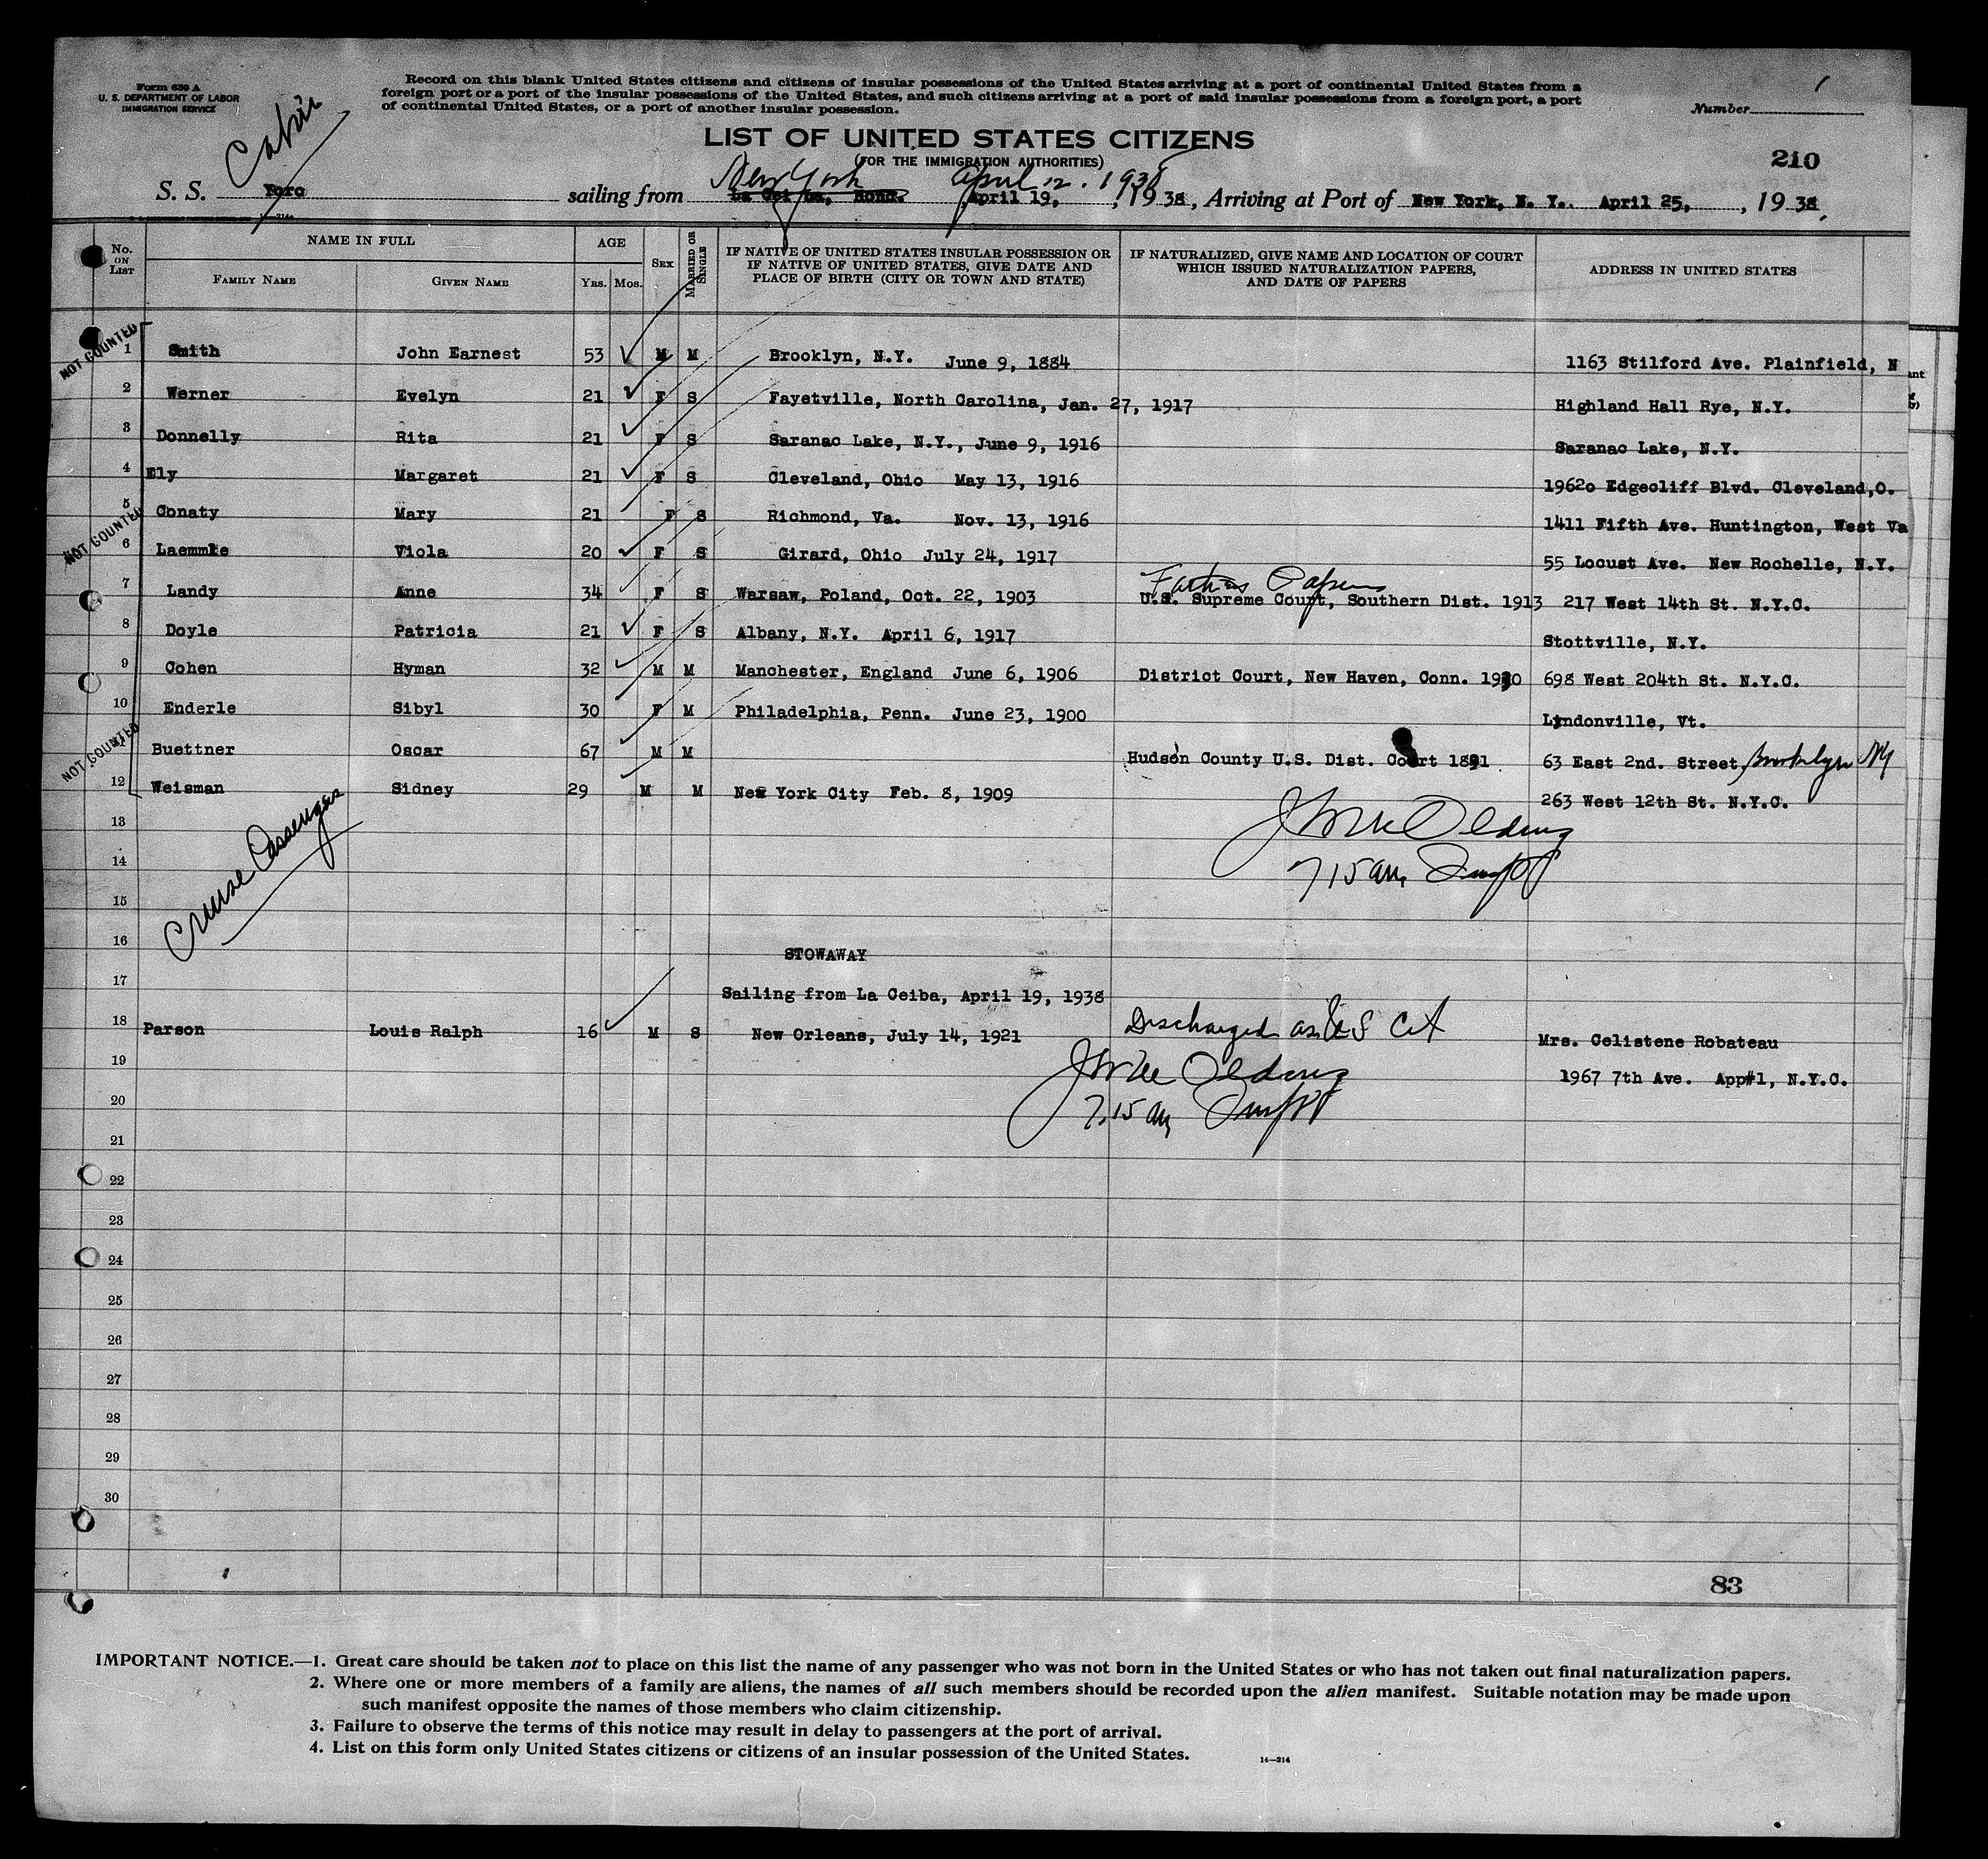 Form 630 A
U. S. DEPARTMENT OF LABOR
IMMIGRATION SERVICE
Record on this blank United States citizens and citizens of insular possessions of the United States arriving at a port of continental United States from a
foreign port or a port of the insular possessions of the United States, and such citizens arriving at a port of said insular possessions from a foreign port, a port
of continental United States, or a port of another insular possession.
Number 1
Cabin
LIST OF UNITED STATES CITIZENS
(FOR THE IMMIGRATION AUTHORITIES)
210
New York April 12. 1938
S. S. Yoro sailing from La Ceiba, Hond. April 19, , 1938, Arriving at Port of New York, N. Y. April 25, , 1938
14—214a
No. ON LIST
NAME IN FULL
FAMILY NAME GIVEN NAME
AGE
YRS. MOS.
SEX
MARRIED OR SINGLE
IF NATIVE OF UNITED STATES INSULAR POSSESSION OR
IF NATIVE OF UNITED STATES, GIVE DATE AND
PLACE OF BIRTH (CITY OR TOWN AND STATE)
IF NATURALIZED, GIVE NAME AND LOCATION OF COURT
WHICH ISSUED NATURALIZATION PAPERS,
AND DATE OF PAPERS
ADDRESS IN UNITED STATES
NOT COUNTED
1 Smith John Earnest 53 M M Brooklyn, N.Y. June 9, 1884 1163 Stilford Ave. Plainfield, N
2 Werner Evelyn 21 F S Fayetville, North Carolina, Jan. 27, 1917 Highland Hall Rye, N.Y.
3 Donnelly Rita 21 F S Saranac Lake, N.Y., June 9, 1916 Saranac Lake, N.Y.
4 Ely Margaret 21 F S Cleveland, Ohio May 13, 1916 19620 Edgecliff Blvd. Cleveland,O.
5 Conaty Mary 21 F S Richmond, Va. Nov. 13, 1916 1411 Fifth Ave. Huntington, West Va
NOT COUNTED
6 Laemmke Viola 20 F S Girard, Ohio July 24, 1917 55 Locust Ave. New Rochelle, N.Y.
Fathers Papers
7 Landy Anne 34 F S Warsaw, Poland, Oct. 22, 1903 U.S. Supreme Court, Southern Dist. 1913 217 West 14th St. N.Y.C.
8 Doyle Patricia 21 F S Albany, N.Y. April 6, 1917 Stottville, N.Y.
9 Cohen Hyman 32 M M Manchester, England June 6, 1906 District Court, New Haven, Conn. 1930 698 West 204th St. N.Y.C.
10 Enderle Sibyl 30 F M Philadelphia, Penn. June 23, 1900 Lyndonville, Vt.
NOT COUNTED
11 Buettner Oscar 67 M M Hudson County U.S. Dist. Court 1891 63 East 2nd. Street, Brooklyn NY
12 Weisman Sidney 29 M M New York City Feb. 8, 1909 263 West 12th St. N.Y.C.
13
14
7 15 am
15
Cruise Passengers
16 STOWAWAY
17 Sailing from La Ceiba, April 19, 1938
18 Parson Louis Ralph 16 M S New Orleans, July 14, 1921 Discharged as U S Cit Mrs. Celistene Robateau
19 1967 7th Ave. App#1, N.Y.C.
20 7.15 am
21
22
23
24
25
26
27
28
29
30
83
IMPORTANT NOTICE.—1. Great care should be taken not to place on this list the name of any passenger who was not born in the United States or who has not taken out final naturalization papers.
2. Where one or more members of a family are aliens, the names of all such members should be recorded upon the alien manifest. Suitable notation may be made upon
such manifest opposite the names of those members who claim citizenship.
3. Failure to observe the terms of this notice may result in delay to passengers at the port of arrival.
4. List on this form only United States citizens or citizens of an insular possession of the United States.
14—214